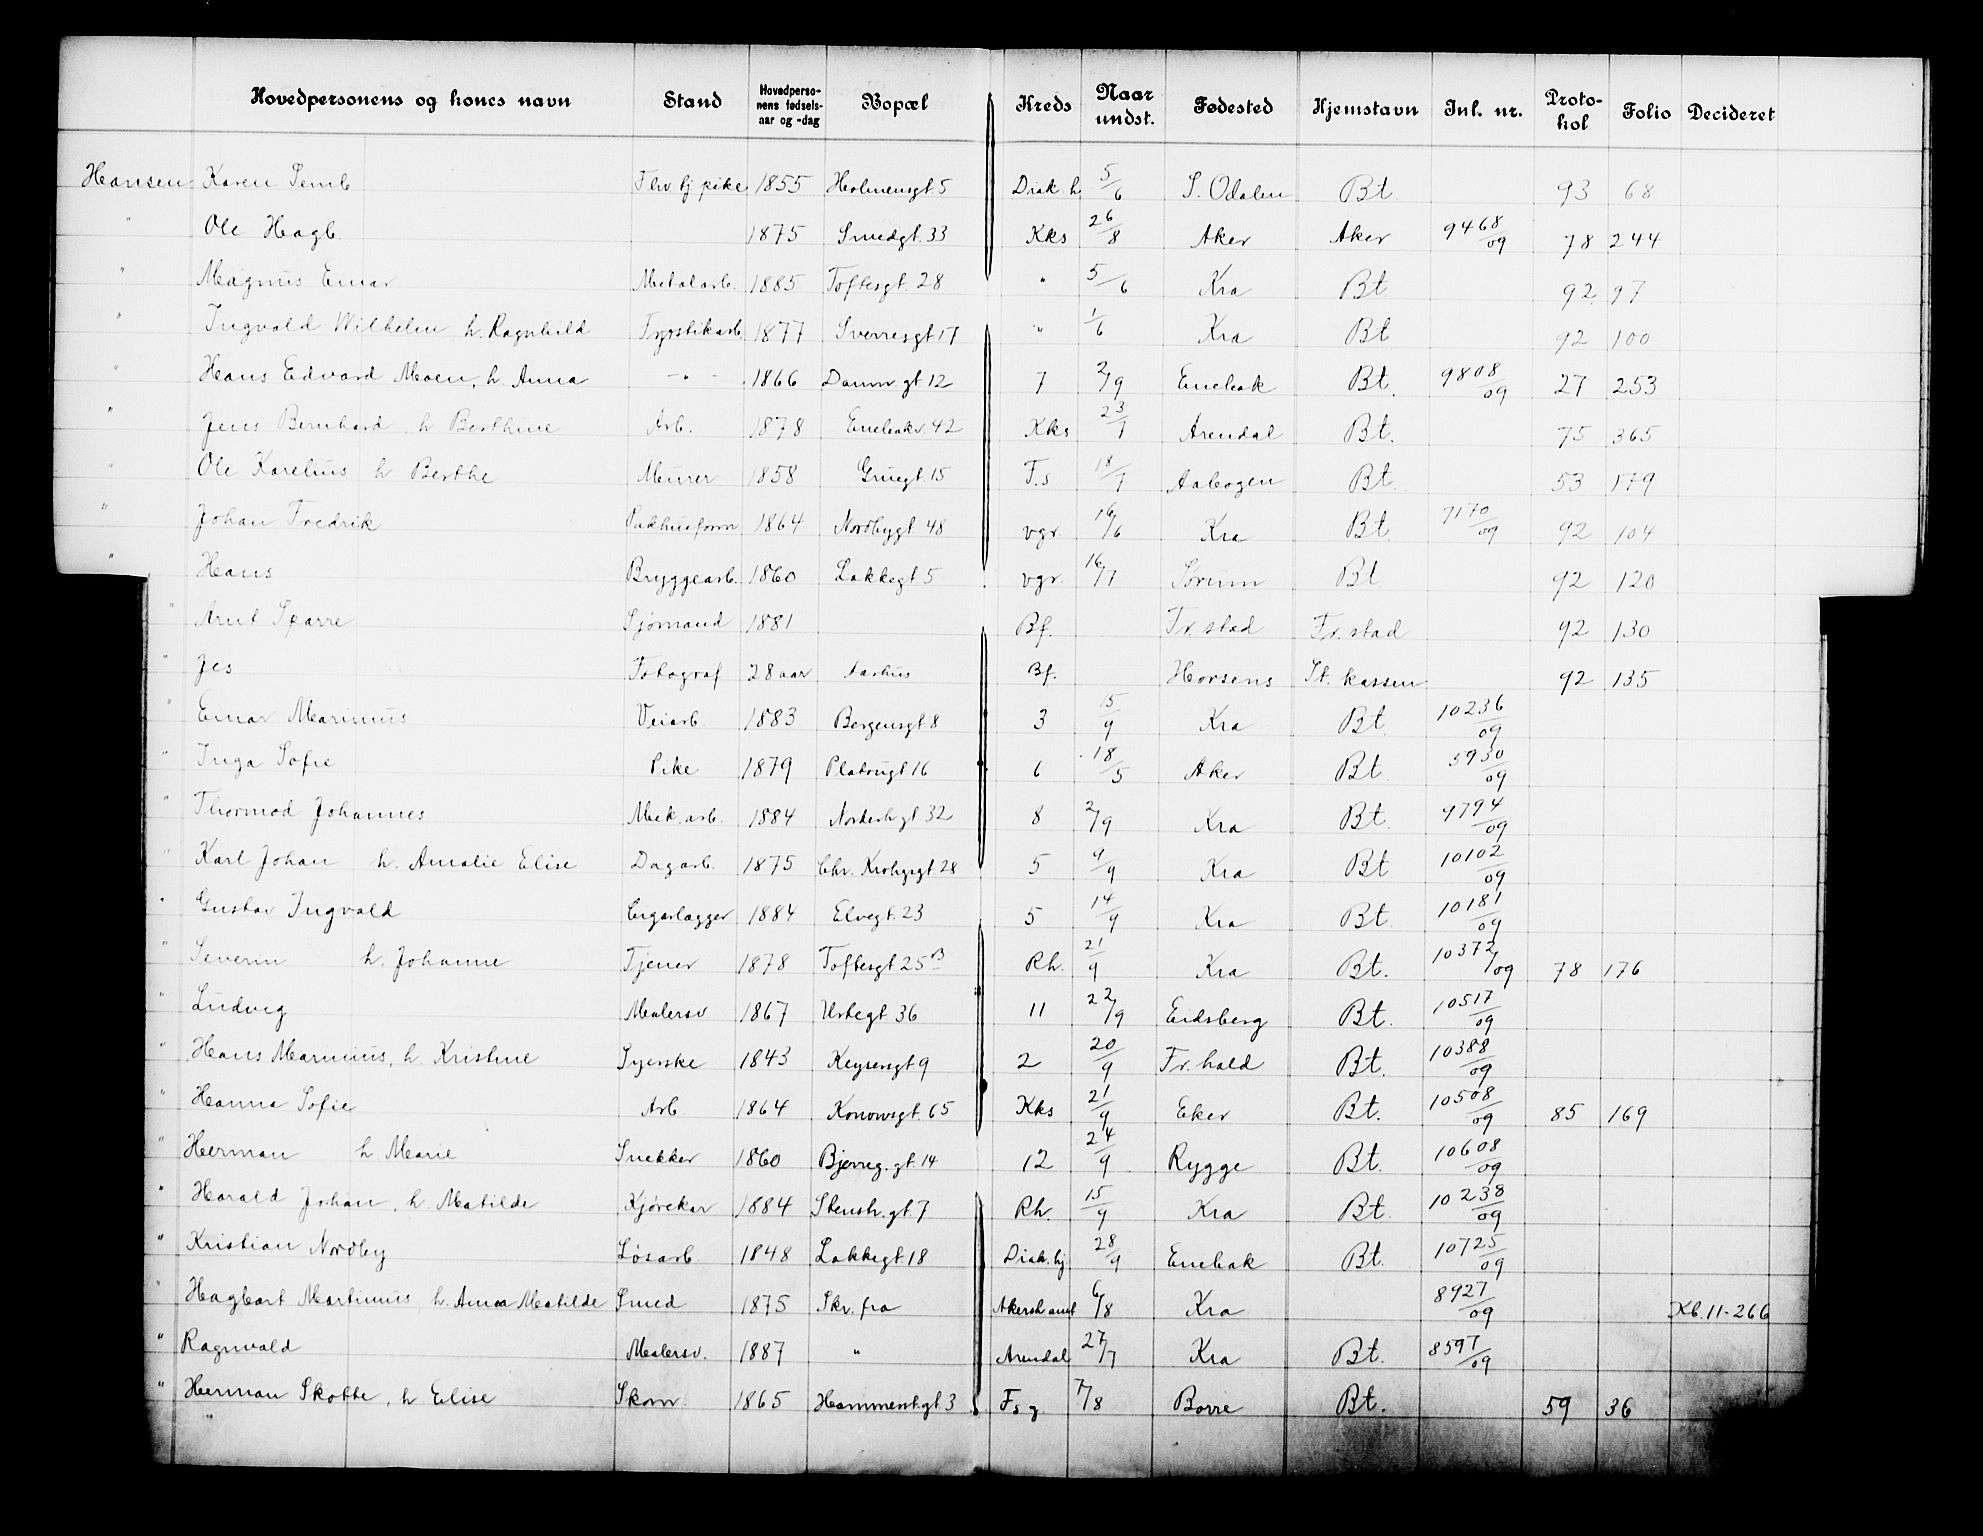 Hovedpersonens og kones navn | Stand | Hovedpersonens fødselsaar og -dag | Bopæl | Kreds | Naar undst. | Fødested | Hjemstavn | Inl. nr. | Protokol | Folio | Decideret
Hansen Karen Semb | Fhv tj pike | 1855 | Holmensgt 5 | Diak h. | 5/6 | S. Odalen | Bt | | 93 | 68
" Ole Hagb | | 1875 | Smedgt. 33 | Kks | 26/8 | Aker | Aker | 9468/09 | 78 | 244
" Magnus Einar | Metalarb. | 1885 | Toftesgt. 28 | " | 5/6 | Kra | Bt | | 92 | 97
" Ingvald Wilhelm h. Ragnhild | | 1877 | Sverresgt 17 | " | 1/6 | Kra | Bt | | 92 | 100
" Hans Edvard Moen, h. Anna | - " - | 1866 | Danm. gt 12 | 7 | 2/9 | Enebak | Bt. | 9808/09 | 27 | 253
" Jens Bernhard h Berthine | Arb. | 1878 | Enebakv. 42 | Kks | 23/7 | Arendal | Bt. | | 75 | 365
" Ole Karelius h Berthe | Murer | 1858 | Gruegt. 15 | F.s | 18/7 | Aabogen | Bt. | | 53 | 179
" Johan Fredrik | Pakhusform | 1864 | Nordbygt 48 | vgr | 16/6 | Kra | Bt | 7170/09 | 92 | 104
" Hans | Bryggearb. | 1860 | Lakkegt 5 | vgr. | 16/7 | Sørum | Bt | | 92 | 120
" Arnt Sparre | Sjømand | 1881 | | Bf. | | Fr. stad | Fr. stad | | 92 | 130
" Jes | Fotograf | 28 aar | Aarhus | Bf. | | Horsens | St. kassen | | 92 | 135
" Einar Marinius | Veiarb. | 1883 | Bergensgt 8 | 3 | 15/9 | Kra | Bt | 10236/09
" Inga Sofie | Pike | 1879 | Platougt 16 | 6 | 18/5 | Aker | Bt | 5930/09
" Thormod Johannes | Mek. arb. | 1884 | Norderh gt 32 | 8 | 2/9 | Kra | Bt. | 9794/09
" Karl Johan h. Amalie Elise | Dagarb. | 1875 | Chr. Krohgsgt 28 | 5 | 9/9 | Kra | Bt | 10102/09
" Gustav Ingvald | Cigarlagger | 1884 | Elvegt. 23 | 5 | 14/9 | Kra | Bt. | 10181/09
" Severin h. Johanne | Tjener | 1878 | Toftesgt 25 B | Rh. | 21/9 | Kra | Bt. | 10372/09 | 78 | 176
" Ludvig | Malersv | 1867 | Urtegt 36 | 11 | 22/9 | Eidsberg | Bt. | 10517/09
" Hans Marinius, h. Kristine | Syerske | 1843 | Keysersgt 9 | 2 | 20/9 | Fr. hald | Bt. | 10388/09
" Hanna Sofie | Arb | 1864 | Konowsgt. 65 | Kks | 21/9 | Eker | Bt. | 10508/09 | 85 | 169
" Herman h. Marie | Snekker | 1860 | Bjerreg. gt. 14 | 12 | 24/9 | Rygge | Bt. | 10608/09
" Harald Johan, h. Matilde | Kjørekar | 1884 | Stensh. gt. 7 | Rh. | 15/9 | Kra | Bt. | 10238/09
" Kristian Nordby | Løsarb. | 1848 | Lakkegt. 18 | Diak. hj. | 28/9 | Enebak | Bt. | 10725/09
" Hagbart Martinius h. Anna Matilde | Smed | 1875 | Skr. fra | Akersh amt | 6/8 | Kra | | 8927/09 | | | Kb. 11-266
" Ragnvald | Malersv. | 1887 | " | Arendal | 27/7 | Kra | Bt. | 8597/09
" Herman Skotte, h. Elise | Skom. | 1865 | Hammerst. gt. 3 | Fs | 7/8 | Borre | Bt. | | 59 | 36
"